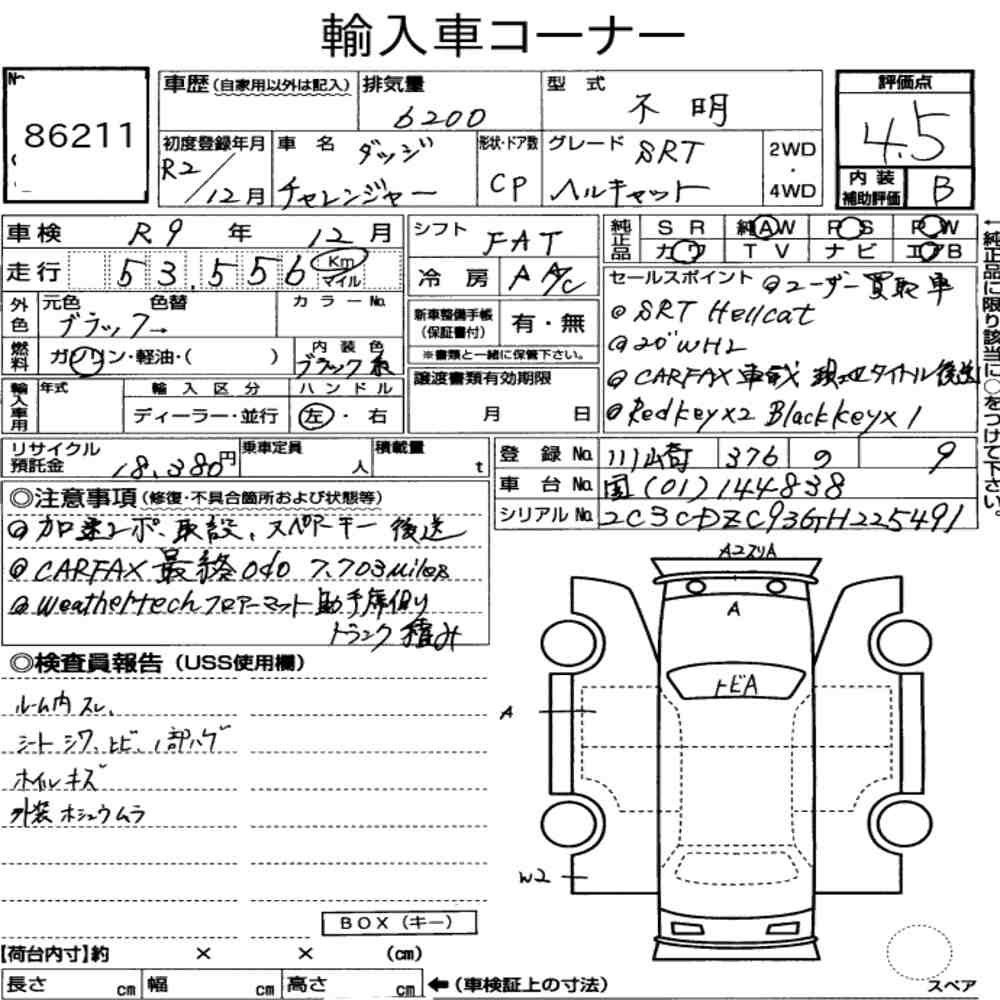 輸入車コーナー
No
86211
車歴(自家用以外は記入) 排気量 6200 型式 不明
評価点 4.5
内装補助評価 B
初度登録年月 R2/12月 車名 ダッジ チャレンジャー 形状・ドア数 CP グレード SRT ヘルキャット 2WD・4WD
車検 R9年 12月 シフト FAT 純正品 SR 純AW PS PW
走行 53,556 Km マイル 冷房 AA/C カワ TV ナビ エアB
外色 元色 ブラック→ 色替 カラーNo.
新車整備手帳(保証書付) 有・無
※書類と一緒に保管下さい。
燃料 ガソリン・軽油・( ) 内装色 ブラック系
輸入車用 年式 輸入区分 ディーラー・並行 ハンドル 左・右
譲渡書類有効期限 月 日
セールスポイント ◎ユーザー買取車
◎SRT Hellcat
◎20"WHL
◎CARFAX車載 現地タイトル後送
◎Redkey×2 Blackkey×1
←純正品に限り該当に○をつけて下さい。
リサイクル預託金 18,380円 乗車定員 人 積載量 t
登録No. 川崎 376 の 9
車台No. 国(01)144838
シリアルNo. 2C3CDZC93GH225491
◎注意事項(修復・不具合箇所および状態等)
◎加速レポ.取説、スペアーキー 後送
◎CARFAX最終odo 7.703miles
◎Weathertechフロアーマット助手席側
トランク積み
◎検査員報告(USS使用欄)
ルーム内スレ、
シートシワ、トビ、1部ハゲ
ホイルキズ
外装ホシュウムラ
A2スリA
A
トビA
A
W2
BOX(キー)
【荷台内寸】約 × × (cm)
長さ cm 幅 cm 高さ cm ←(車検証上の寸法)
スペア